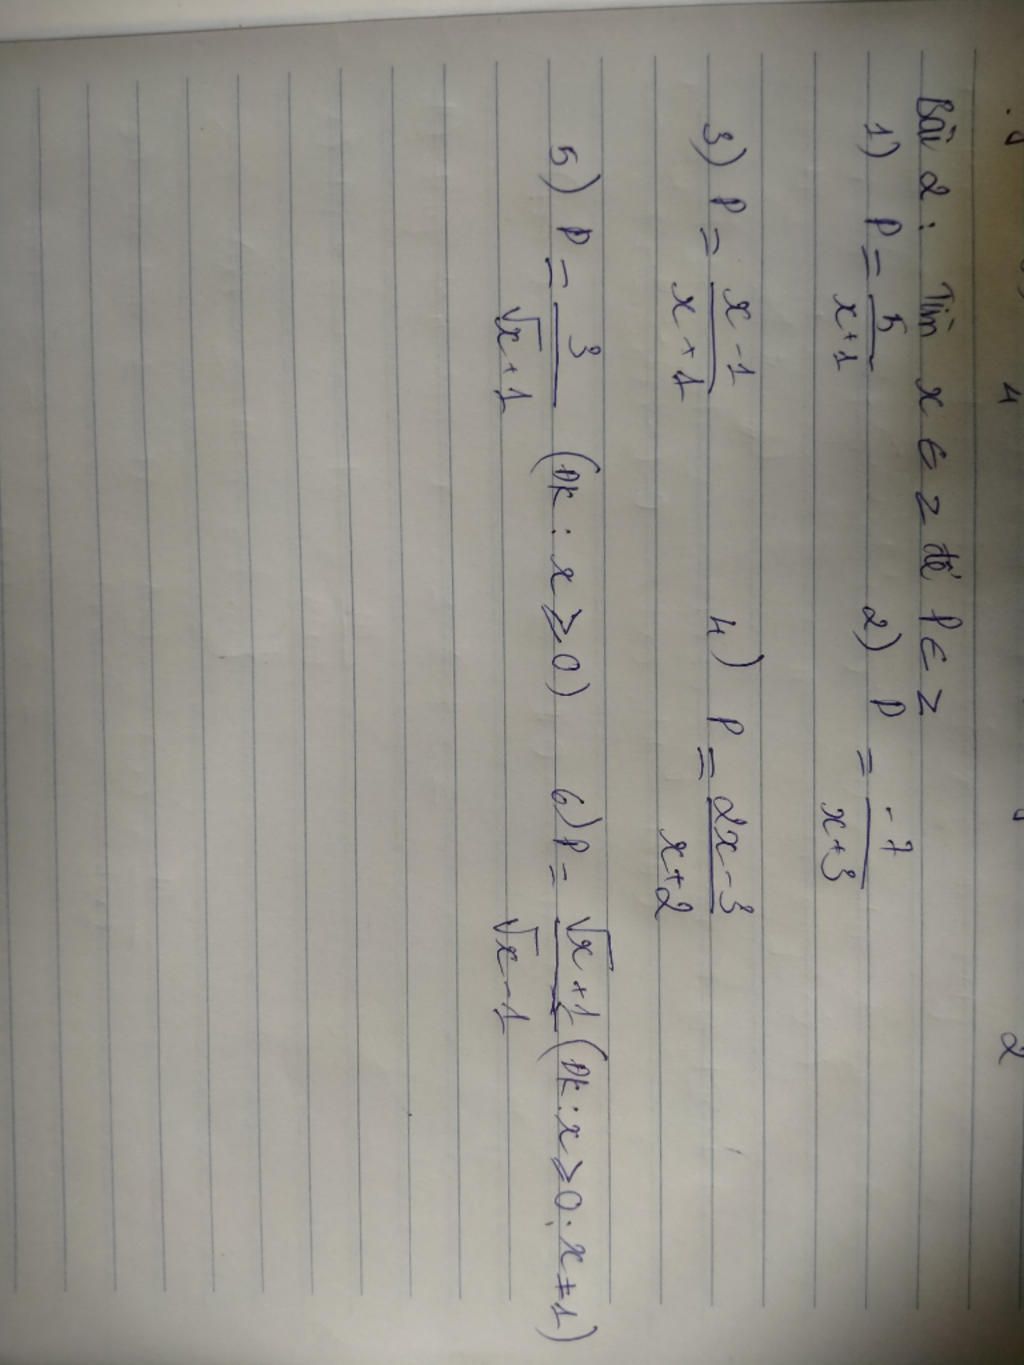 4 2
Bài 2: Tìm x ∈ Z để P ∈ Z
1) P = 5/(x+1) 2) P = -7/(x+3)
3) P = (x-1)/(x+1) 4) P = (2x-3)/(x+2)
5) P = 3/(√x+1) (ĐK: x ≥ 0) 6) P = (√x+1)/(√x-1) (ĐK: x ≥ 0. x ≠ 1)